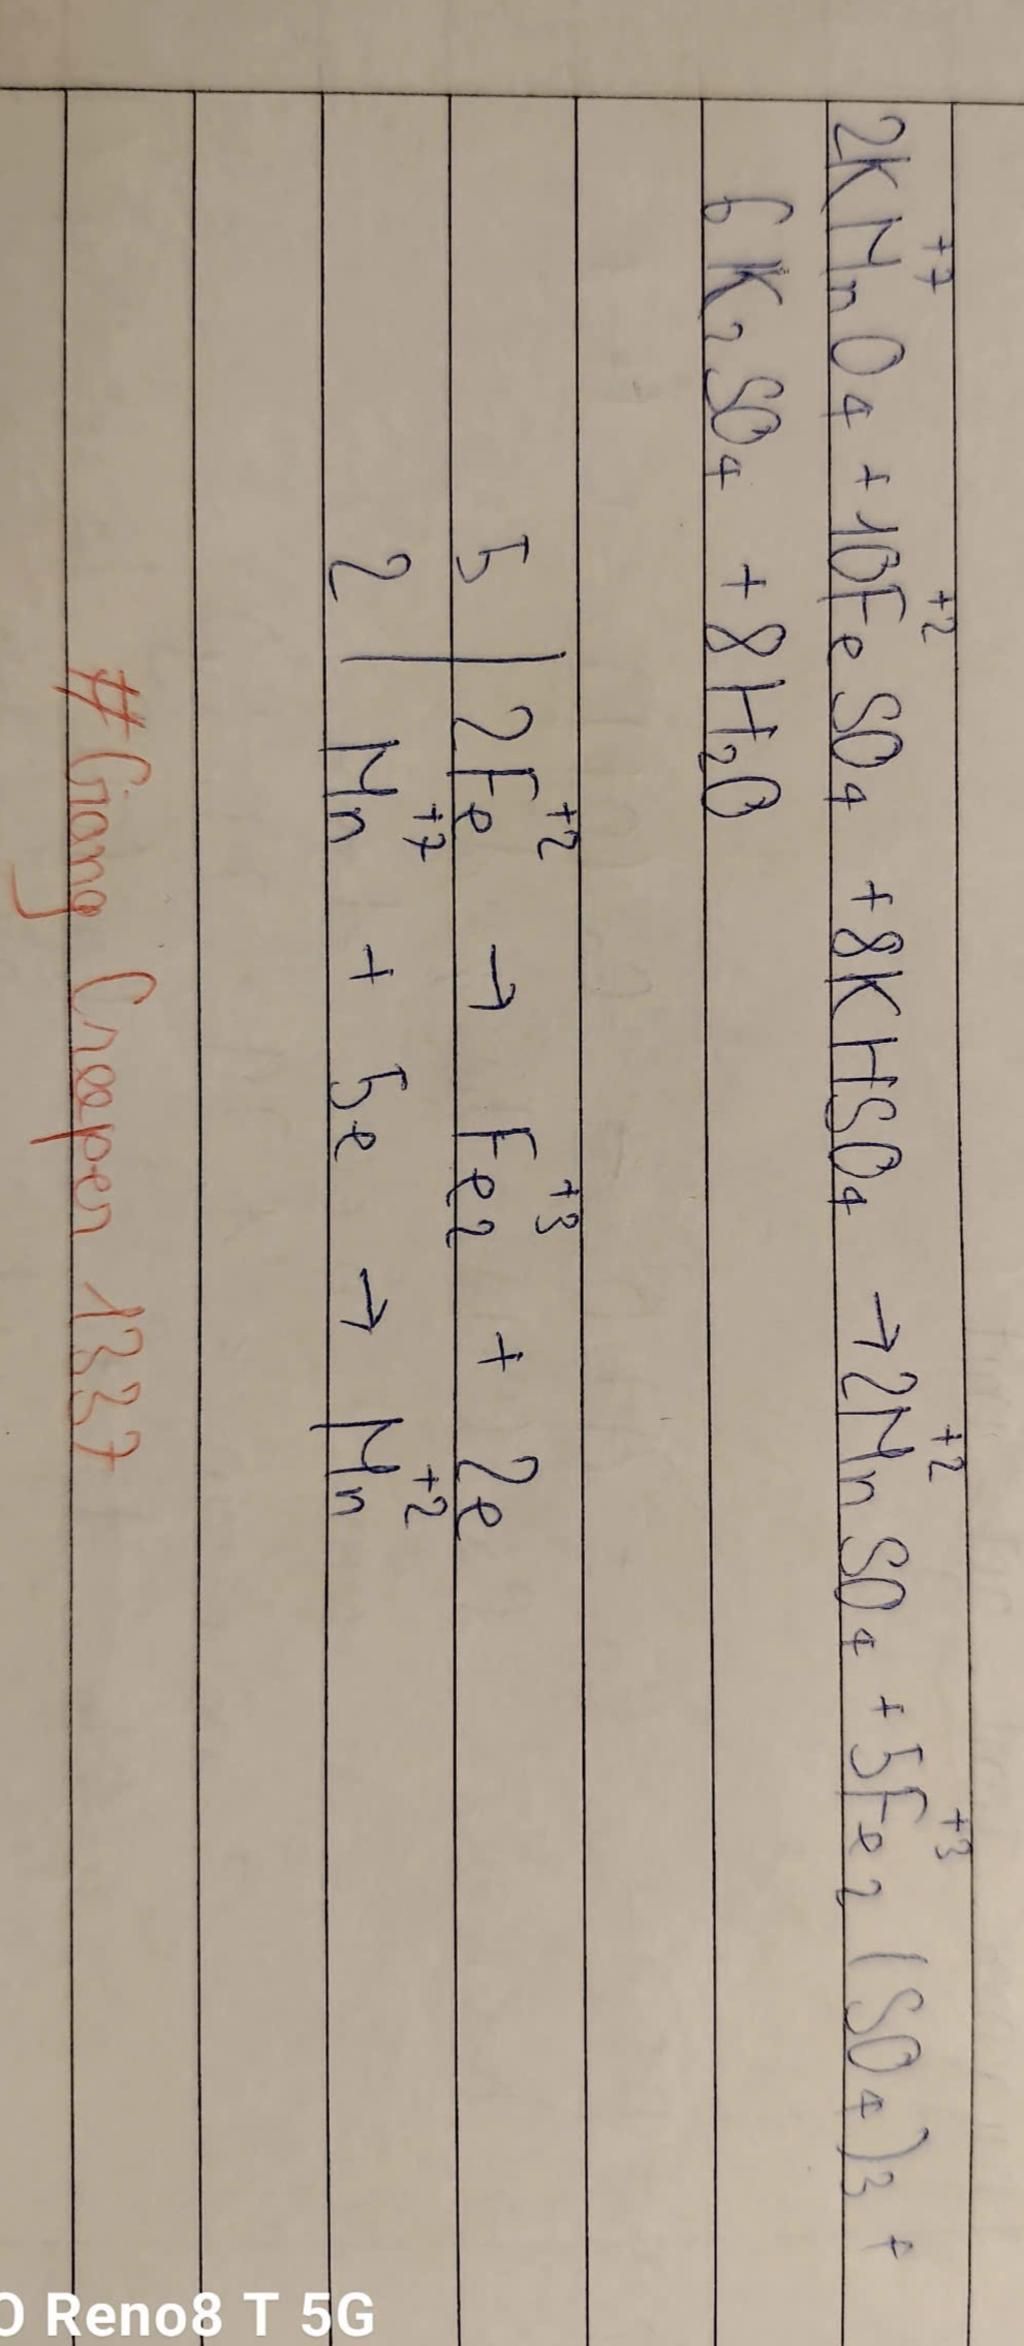 2KMn⁺⁷O₄ + 10Fe⁺²SO₄ + 8KHSO₄ → 2Mn⁺²SO₄ + 5Fe⁺³₂(SO₄)₃ +
6K₂SO₄ + 8H₂O
5 | 2Fe⁺² → Fe⁺³₂ + 2e
2 | Mn⁺⁷ + 5e → Mn⁺²
#Giang Creeper 1337
O Reno8 T 5G